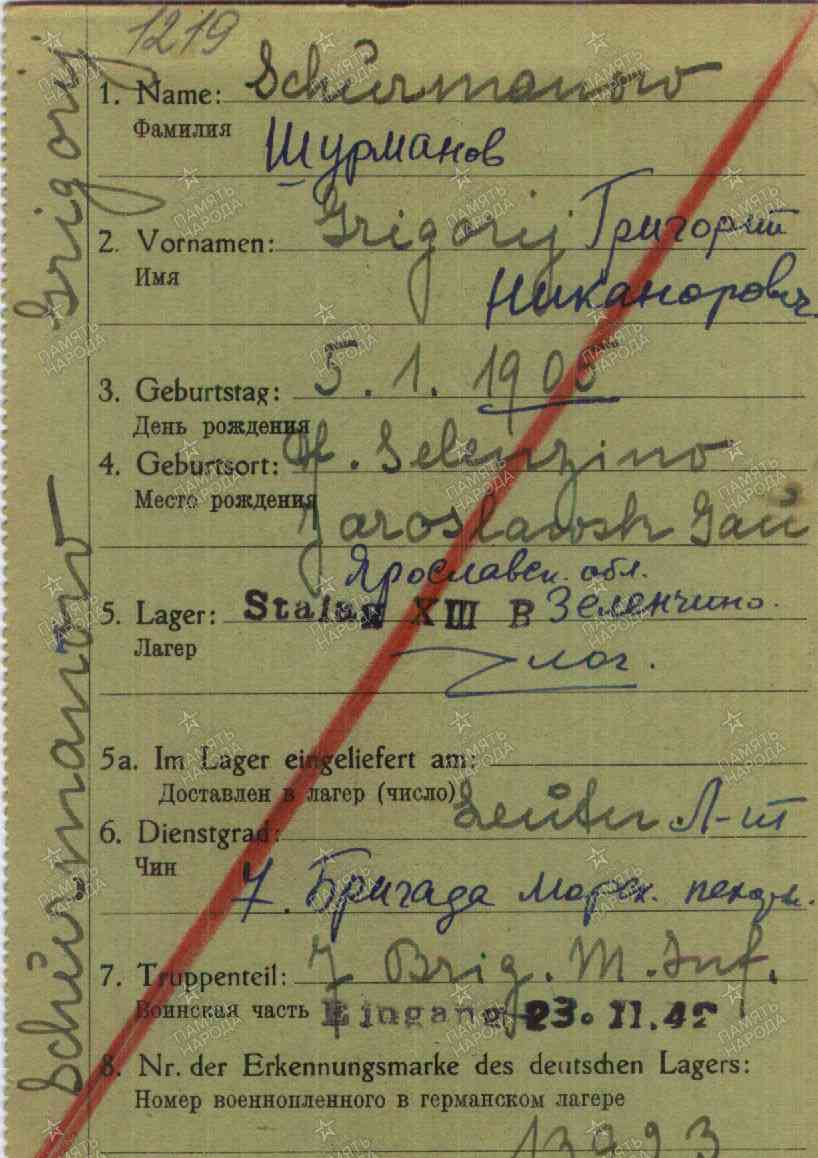 1219
1. Name: Schurmanow
Фамилия Шурманов
2. Vornamen: Grigorij Григорий
Имя Никанорович
3. Geburtstag: 5. 1. 1905
День рождения
4. Geburtsort: Selenzino
Место рождения Jaroslawsk Gau
Ярославск. обл.
5. Lager: Stalag XIII B Зеленчино.
Лагер
5a. Im Lager eingeliefert am:
Доставлен в лагер (число)
6. Dienstgrad: Leutn Л-т
Чин
7. Бригада морск. пехоты.
7. Truppenteil: 7 Brig. M. Inf.
Воинская часть Eingang 23. 11. 42
8. Nr. der Erkennungsmarke des deutschen Lagers:
Номер военнопленного в германском лагере
13993
Schurmanow Grigorij
ПАМЯТЬ НАРОДА